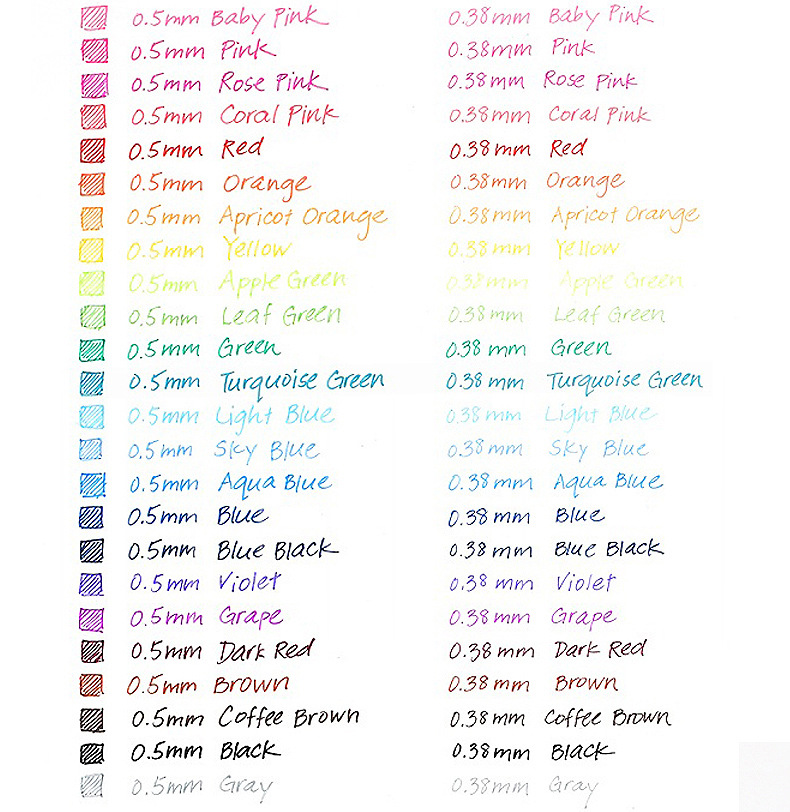 0.5mm Baby Pink 0.38mm Baby Pink
0.5mm Pink 0.38mm Pink
0.5mm Rose Pink 0.38mm Rose Pink
0.5mm Coral Pink 0.38mm Coral Pink
0.5mm Red 0.38mm Red
0.5mm Orange 0.38mm Orange
0.5mm Apricot Orange 0.38mm Apricot Orange
0.5mm Yellow 0.38mm Yellow
0.5mm Apple Green 0.38mm Apple Green
0.5mm Leaf Green 0.38mm Leaf Green
0.5mm Green 0.38 mm Green
0.5mm Turquoise Green 0.38 mm Turquoise Green
0.5mm Light Blue 0.38 mm Light Blue
0.5mm Sky Blue 0.38mm Sky Blue
0.5mm Aqua Blue 0.38mm Aqua Blue
0.5mm Blue 0.38 mm Blue
0.5mm Blue Black 0.38 mm Blue Black
0.5mm Violet 0.38 mm Violet
0.5mm Grape 0.38mm Grape
0.5mm Dark Red 0.38 mm Dark Red
0.5mm Brown 0.38 mm Brown
0.5mm Coffee Brown 0.38 mm Coffee Brown
0.5mm Black 0.38mm Black
0.5mm Gray 0.38mm Gray